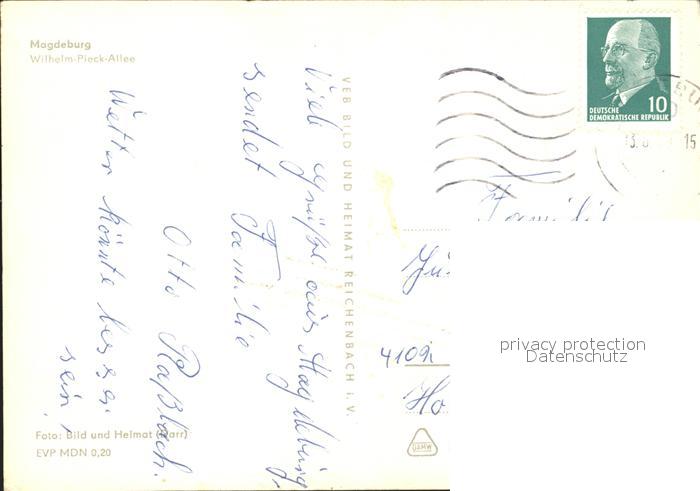 Magdeburg
Wilhelm-Pieck-Allee
Viele Grüße aus Magdeburg,
sendet Familie
Otto Raßbach.
Wetter könnte besser
sein!
VEB BILD UND HEIMAT REICHENBACH i. V.
DEUTSCHE
DEMOKRATISCHE REPUBLIK
10
15
Familie
4109
Ho
privacy protection
Datenschutz
Foto: Bild und Heimat (Darr)
EVP MDN 0,20